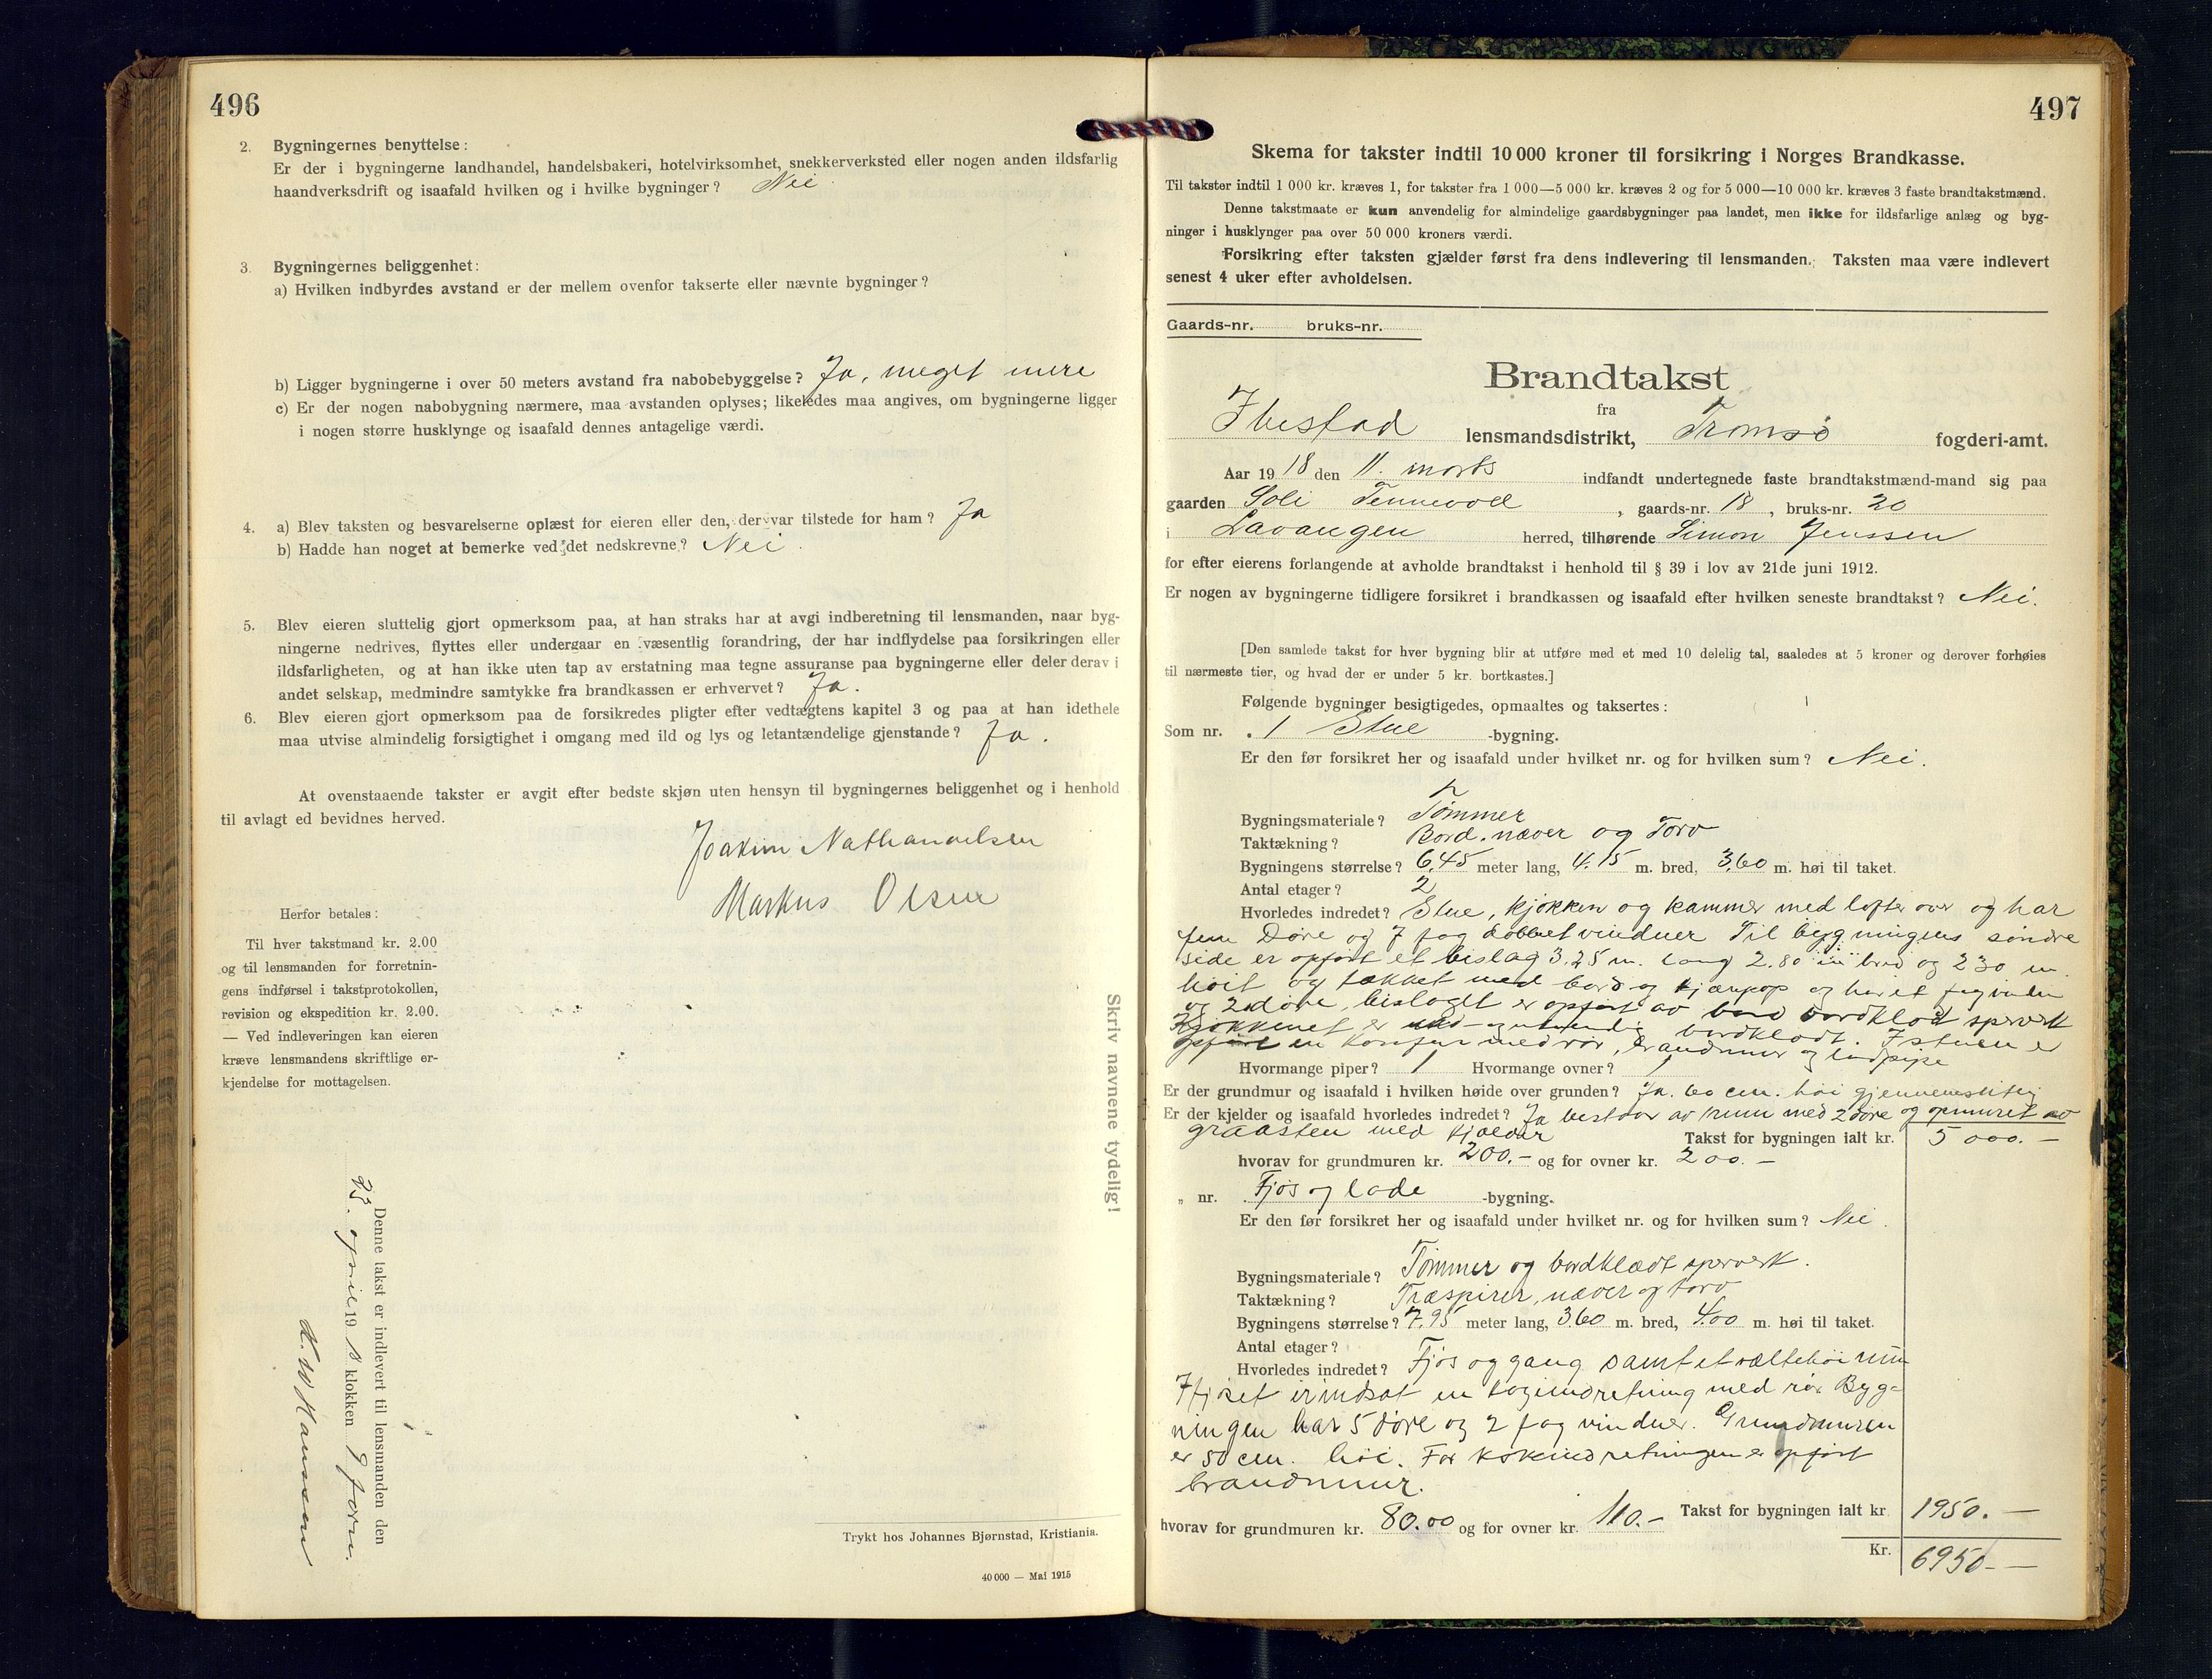 496
2. Bygningernes benyttelse:
Er der i bygningerne landhandel, handelsbakeri, hotelvirksomhet, snekkerverksted eller nogen anden ildsfarlig
haandverksdrift og isaafald hvilken og i hvilke bygninger? Nei
3. Bygningernes beliggenhet:
a) Hvilken indbyrdes avstand er der mellem ovenfor takserte eller nævnte bygninger?
b) Ligger bygningerne i over 50 meters avstand fra nabobebyggelse? Ja, meget mere
c) Er der nogen nabobygning nærmere, maa avstanden oplyses; likeledes maa angives, om bygningerne ligger
i nogen større husklynge og isaafald dennes antagelige værdi.
4. a) Blev taksten og besvarelserne oplæst for eieren eller den, der var tilstede for ham? Ja
b) Hadde han noget at bemerke ved det nedskrevne? Nei.
5. Blev eieren sluttelig gjort opmerksom paa, at han straks har at avgi indberetning til lensmanden, naar byg-
ningerne nedrives, flyttes eller undergaar en væsentlig forandring, der har indflydelse paa forsikringen eller
ildsfarligheten, og at han ikke uten tap av erstatning maa tegne assuranse paa bygningerne eller deler derav i
andet selskap, medmindre samtykke fra brandkassen er erhvervet? Ja.
6. Blev eieren gjort opmerksom paa de forsikredes pligter efter vedtægtens kapitel 3 og paa at han idethele
maa utvise almindelig forsigtighet i omgang med ild og lys og letantændelige gjenstande? Ja.
At ovenstaaende takster er avgit efter bedste skjøn uten hensyn til bygningernes beliggenhet og i henhold
til avlagt ed bevidnes herved.
Joakim Nathanaelsen
Markus Olsen
Herfor betales:
Til hver takstmand kr. 2.00
og til lensmanden for forretnin-
gens indførsel i takstprotokollen,
revision og ekspedition kr. 2.00.
— Ved indleveringen kan eieren
kræve lensmandens skriftlige er-
kjendelse for mottagelsen.
Skriv navnene tydelig!
Denne takst er indlevert til lensmanden den
23. april 1918 klokken 9 form.
Hanssen
Trykt hos Johannes Bjørnstad, Kristiania.
40 000 — Mai 1915
497
Skema for takster indtil 10 000 kroner til forsikring i Norges Brandkasse.
Til takster indtil 1 000 kr. kræves 1, for takster fra 1 000—5 000 kr. kræves 2 og for 5 000—10 000 kr. kræves 3 faste brandtakstmænd.
Denne takstmaate er kun anvendelig for almindelige gaardsbygninger paa landet, men ikke for ildsfarlige anlæg og byg-
ninger i husklynger paa over 50 000 kroners værdi.
Forsikring efter taksten gjælder først fra dens indlevering til lensmanden. Taksten maa være indlevert
senest 4 uker efter avholdelsen.
Gaards-nr. bruks-nr.
Brandtakst
fra
Ibestad lensmandsdistrikt, Tromsø fogderi-amt.
Aar 1918 den 11. marts indfandt undertegnede faste brandtakstmænd-mand sig paa
gaarden Soli Tennevoll, gaards-nr. 18, bruks-nr. 20
i Lavangen herred, tilhørende Simon Jenssen
for efter eierens forlangende at avholde brandtakst i henhold til § 39 i lov av 21de juni 1912.
Er nogen av bygningerne tidligere forsikret i brandkassen og isaafald efter hvilken seneste brandtakst? Nei.
[Den samlede takst for hver bygning blir at utføre med et med 10 delelig tal, saaledes at 5 kroner og derover forhøies
til nærmeste tier, og hvad der er under 5 kr. bortkastes.]
Følgende bygninger besigtigedes, opmaaltes og taksertes:
Som nr. 1 Stue -bygning.
Er den før forsikret her og isaafald under hvilket nr. og for hvilken sum? Nei.
Bygningsmateriale? Tømmer
Taktækning? Bord, næver og Torv
Bygningens størrelse? 6,45 meter lang, 4.15 m. bred, 3.60 m. høi til taket.
Antal etager? 2
Hvorledes indredet? Stue, kjøkken og kammer med lofter over og har
fem Døre og 7 fag dobbelt vinduer Til bygningens søndre
side er opført et bislag 3.25 m. lang 2.80 m bred og 2 30 m.
høit og tækket med bord og og har et fag vindu
og 2 døre, bislaget er opført av bordklædt sperverk
Kjøkkenet er utvendig bordklædt. I stuen er
opført en komfur med rør, brandmur og
Hvormange piper? 1 Hvormange ovner? 1
Er der grundmur og isaafald i hvilken høide over grunden? Ja. 60 cm. høi gjennemsnitlig
Er der kjelder og isaafald hvorledes indredet? Ja bestaar av 1 rum med 2 døre og opmuret av
graasten med kjælder Takst for bygningen ialt kr. 5 000.—
hvorav for grundmuren kr. 200.— og for ovner kr. 200.—
„ nr. Fjøs og lade -bygning.
Er den før forsikret her og isaafald under hvilket nr. og for hvilken sum? Nei.
Bygningsmateriale? Tømmer og bordklædt sperverk.
Taktækning? Træspirer, næver og torv
Bygningens størrelse? 7.95 meter lang, 3.60 m. bred, 4.00 m. høi til taket.
Antal etager?
Hvorledes indredet? Fjøs og gang samt et rum
I fjøset er indsat en kogeindretning med rør Byg-
ningen har 5 døre og 2 fag vinduer. Grundmuren
er 50 cm. høi. For kokeindretningen er opført
brandmur.
hvorav for grundmuren kr. 80.00 og for ovner kr. 110.— Takst for bygningen ialt kr 1950.—
Kr. 6950.—